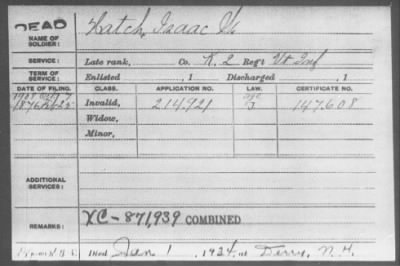 DEAD
NAME OF SOLDIER: Hatch, Isaac
SERVICE: Late rank, Co. K. 2 Reg't Vt Inf
TERM OF SERVICE: Enlisted , 1 Discharged , 1
DATE OF FILING. CLASS. APPLICATION NO. LAW. CERTIFICATE NO.
1876 Invalid, 214.921 147.608
Widow,
Minor,
ADDITIONAL SERVICES:
REMARKS: XC-871,939 COMBINED
Died Jan 1, 1924, at Derry, N. H.